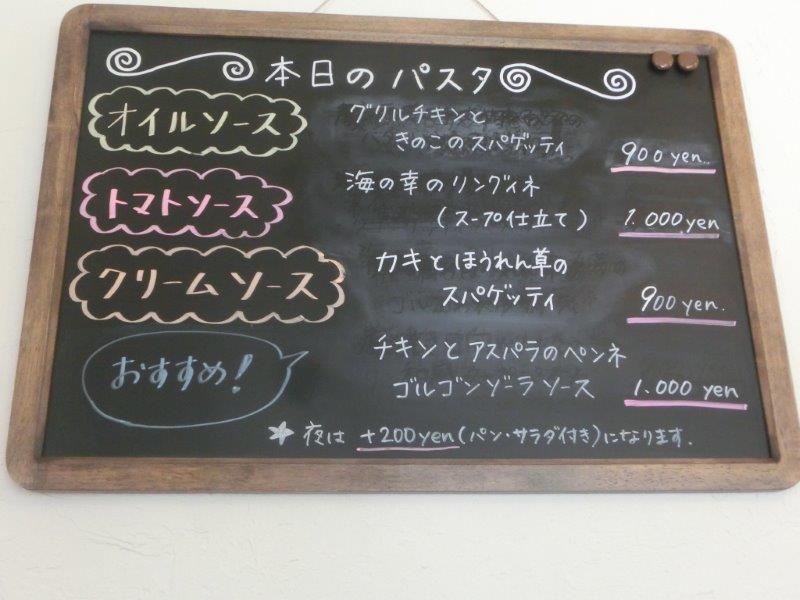 本日のパスタ
オイルソース
グリルチキンと
きのこのスパゲッティ
900yen.
トマトソース
海の幸のリングィネ
(スープ仕立て)
1.000yen
クリームソース
カキとほうれん草の
スパゲッティ
900yen.
おすすめ!
チキンとアスパラのペンネ
ゴルゴンゾーラソース
1.000yen
★夜は+200yen(パン・サラダ付き)になります.